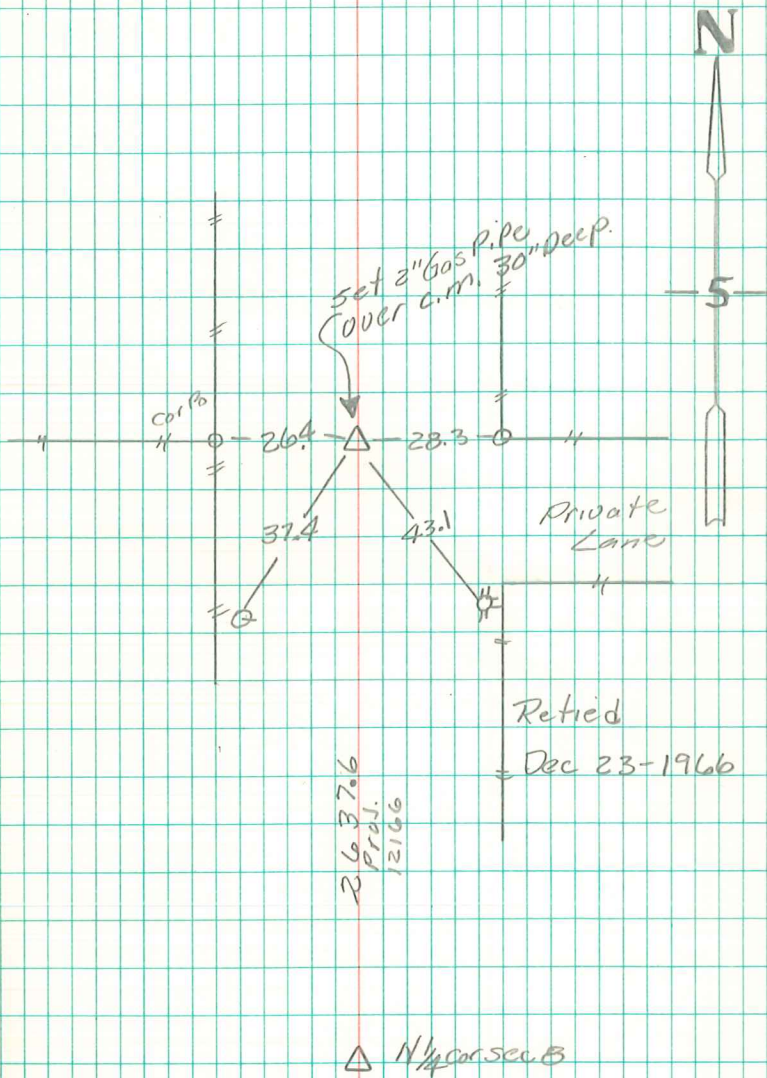 N
Set 2" Gas Pipe
over c.m. 30" Deep.
5
Cor Po
26.4
28.3
37.4
43.1
Private
Lane
Retied
Dec 23-1966
2637.6
Proj.
12166
N 1/4 cor sec 8